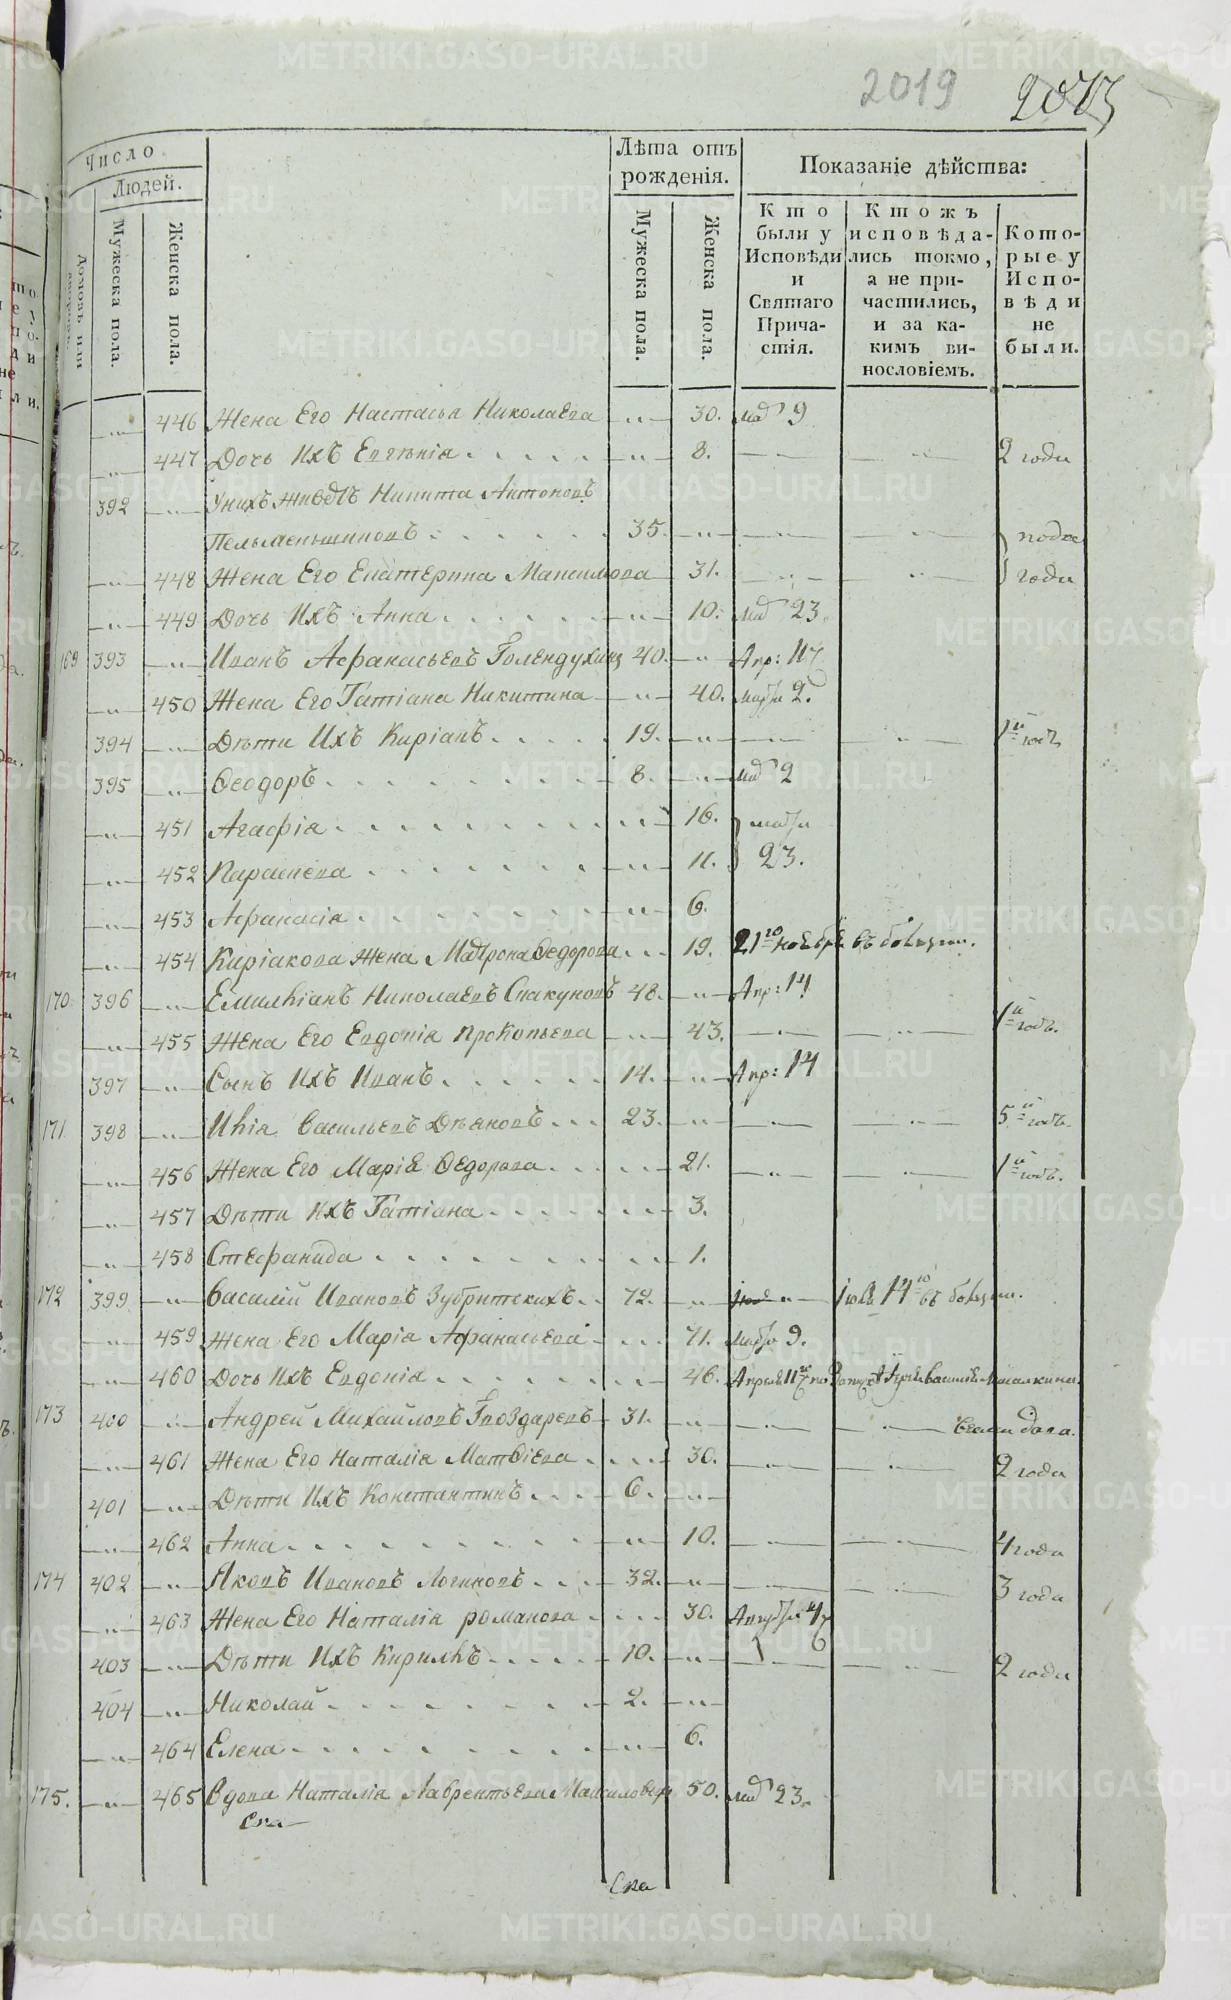 2019
Число
Людей.
Лѣта отъ рожденія.
Показаніе дѣйства:
Мужеска пола.
Женска пола.
Мужеска пола.
Женска пола.
Кто были у Исповѣди и Святаго Причастія.
Ктожъ исповѣдались токмо, а не причастились, и за какимъ винословіемъ.
Которые у Исповѣди не были.
446 Жена Его Настасья Николаева 30. 9
447 Дочь Ихъ Евгѣнія 8. 2 года
392 Унихъ Никита Антоновъ
Пельменьщиковъ 35.
448 Жена Его Екатерина Максимова 31. года
449 Дочь Ихъ Анна 10. 23.
169 393 Иванъ Афанасьевъ Голендухинъ 40. Апр: 14
450 Жена Его Татіана Никитина 40. марта 2.
394 Дѣти Ихъ Киріакъ 19. 1й годъ
395 Ѳеодоръ 8. 2
451 Агафія 16. марта
452 Параскева 11. 23.
453 Афанасія 6.
454 Киріакова Жена Матрона Ѳедорова 19. 21го ноября въ болезни.
170. 396 Емилліанъ Николаевъ Спакуновъ 48. Апр: 14
455 Жена Его Евдокія Прокопьева 43. 1й годъ.
397 Сынъ Ихъ Иванъ 14. Апр: 14
171 398 Илія Васильевъ Дѣяновъ 23. 5й годъ.
456 Жена Его Марія Ѳедорова 21. 1й годъ.
457 Дѣти Ихъ Татіана 3.
458 Стефанида 1.
172 399 Василій Ивановъ Зубритскихъ 72. 14го въ болезни.
459 Жена Его Марія Афанасьева 71. марта 9.
460 Дочь Ихъ Евдокія 46. Апреля 11го
173 400 Андрей Михайловъ Гвоздаревъ 31.
461 Жена Его Наталія Матѳіева 30. 2 года
401 Дѣти Ихъ Константинъ 6.
462 Анна 10. 4 года
174 402 Яковъ Ивановъ Логиновъ 32. 3 года
463 Жена Его Наталія романова 30. Августа
403 Дѣти Ихъ Кириллъ 10. 2 года
404 Николай 2.
464 Елена 6.
175. 465 Вдова Наталія Лаврентьева Максимовыхъ 50. 23.